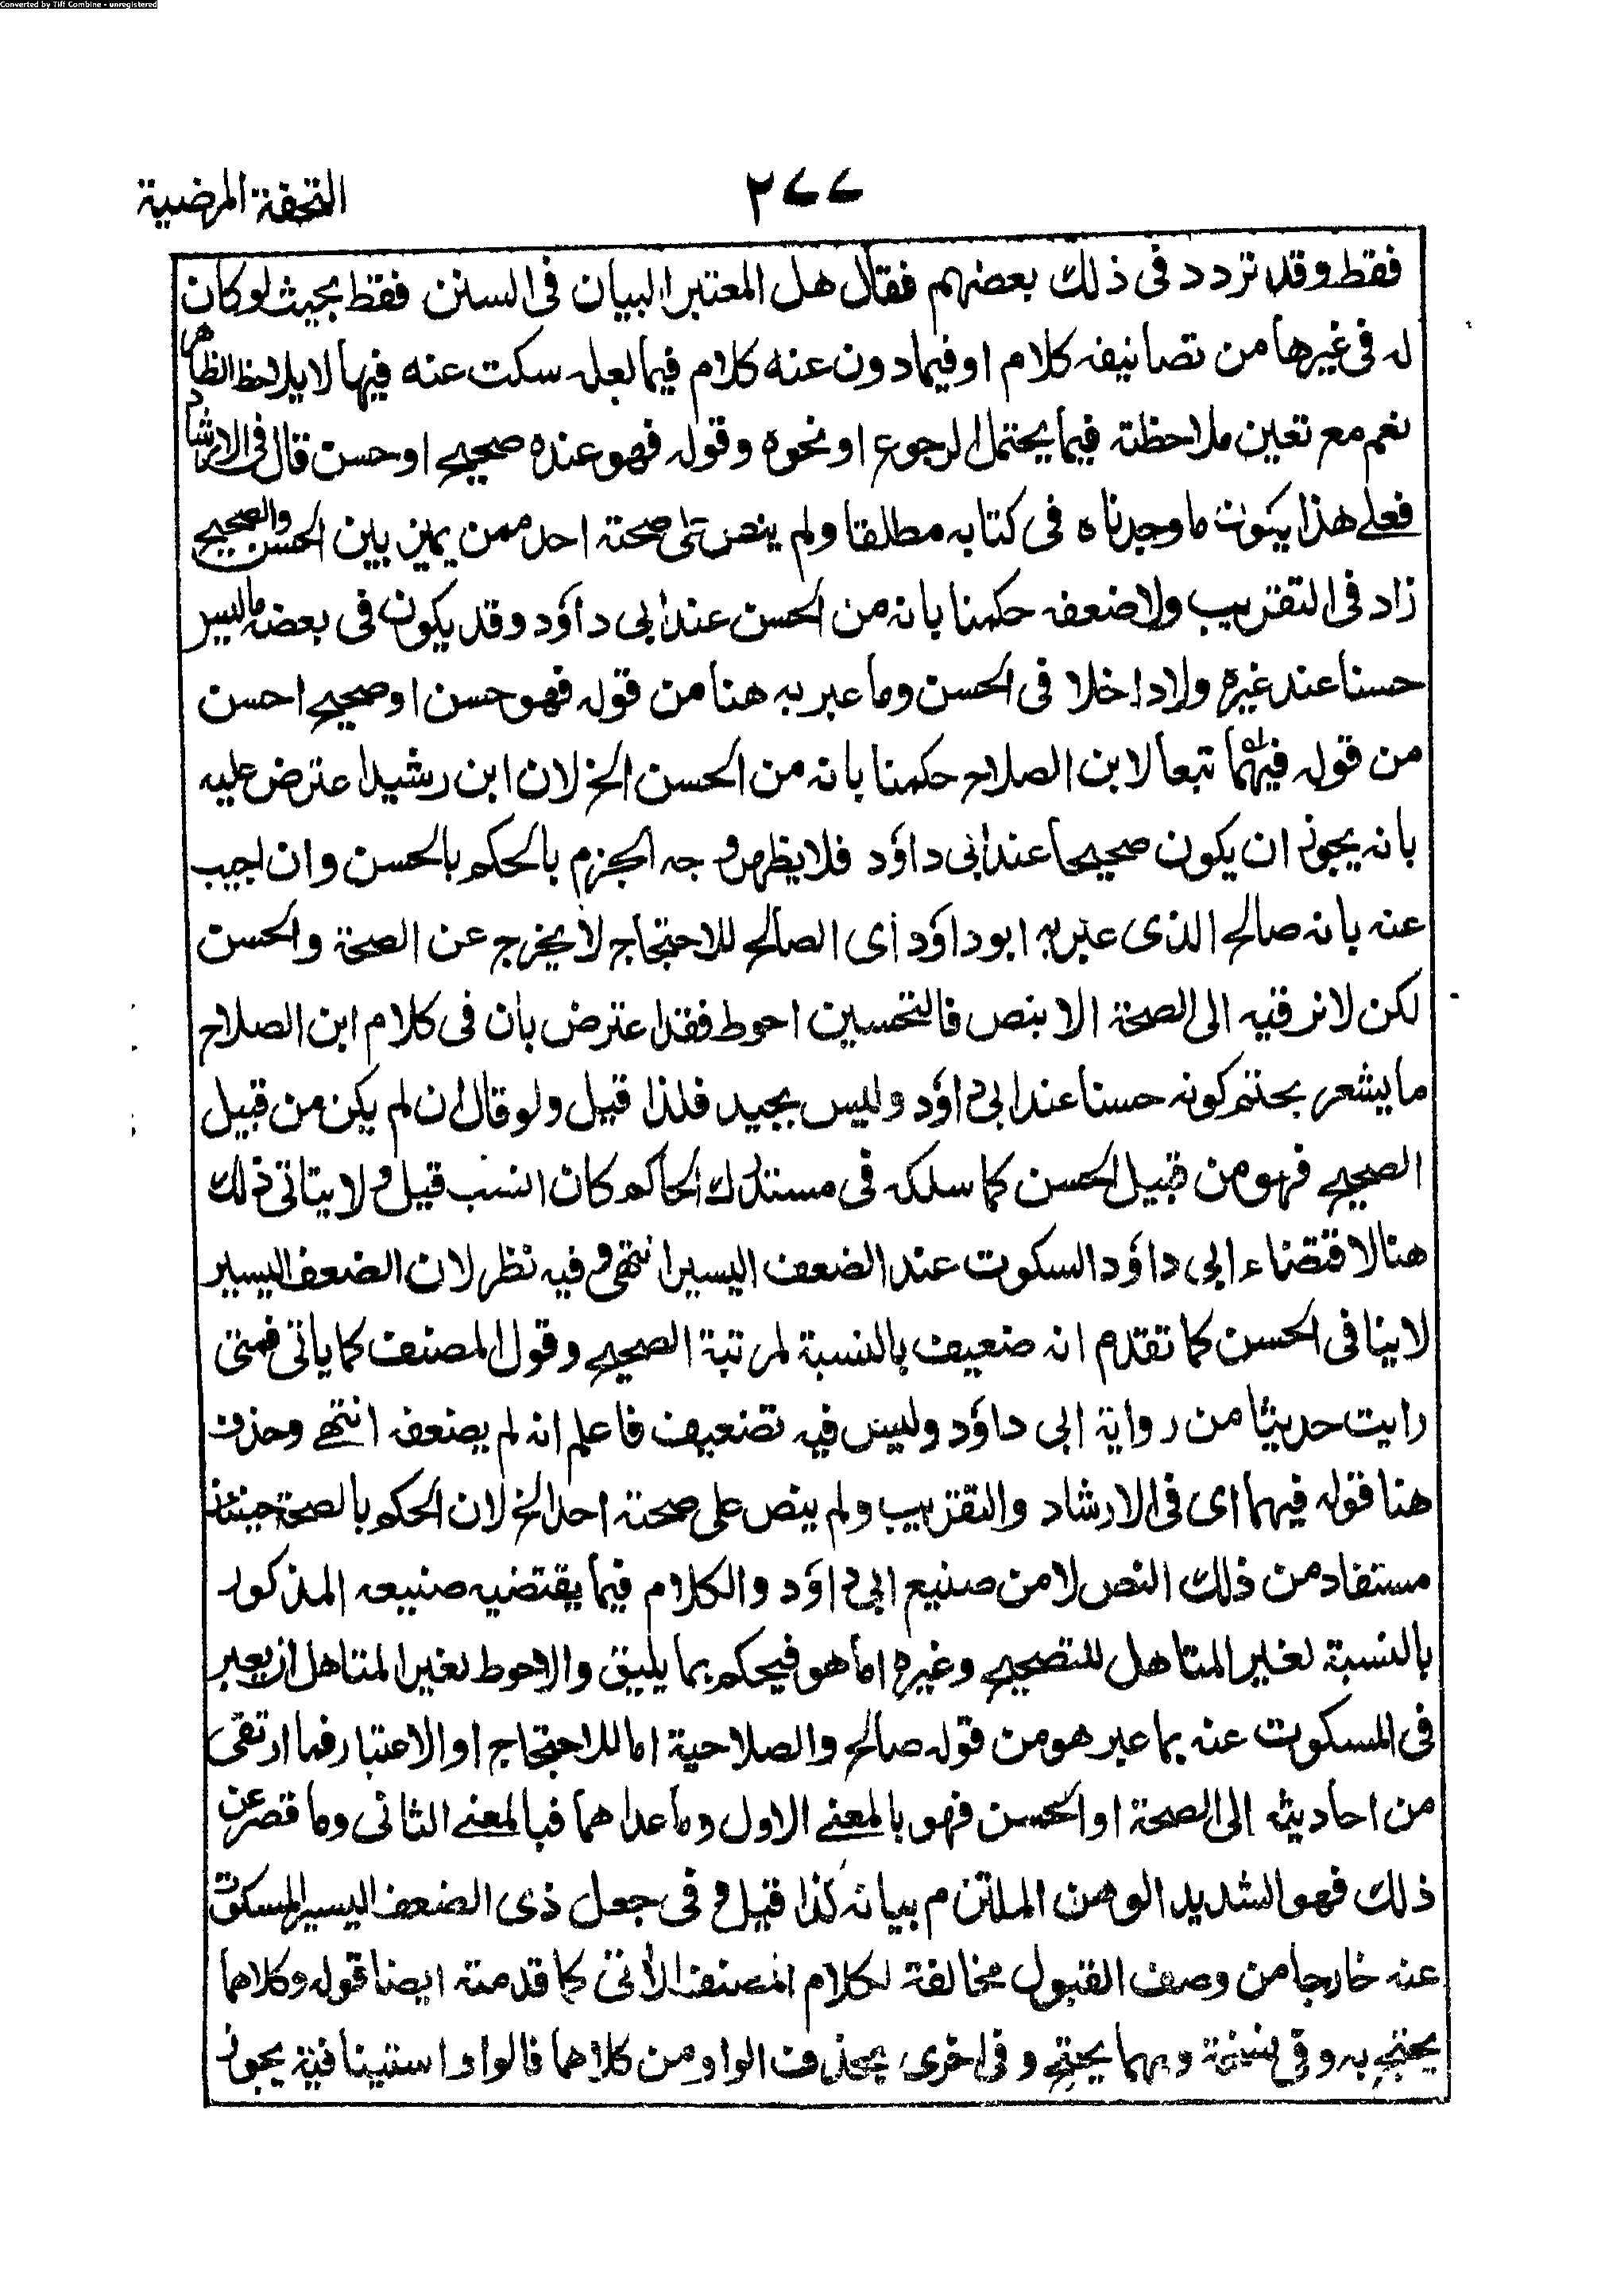 Converted by Tiff Combine - unregistered
التحفة المرضية
٢٧٧
فقط وقد تردد فى ذلك بعضهم فقال هل المعتبر البيان فى السنن فقط بحيث لوكان
له فى غيرها من تصانيفه كلام اوفيمادون عنه كلام فيما لعله سكت عنه فيها لا يلاحظ الظاهر
نعم مع تعين ملاحظته فيما يحتمل الرجوع او نحوه وقوله فهو عنده صحيح اوحسن قال فى الارشاد
فعلى هذا يكون ما وجدناه فى كتابه مطلقا ولم ينص على صحته احد ممن يميز بين الحسن والصحيح
زاد فى التقريب ولا ضعفه حكمنا بانه من الحسن عند ابى داؤد وقد يكون فى بعضه ماليس
حسنا عند غيره ولا داخلا فى الحسن وما عبر به هنا من قوله فهو حسن او صحيح احسن
من قوله فيهما تبعا لابن الصلاح حكمنا بانه من الحسن الخ لان ابن رشيد اعترض عليه
بانه يجوز ان يكون صحيحا عند ابى داؤد فلا يظهر وجه الجزم بالحكم بالحسن وان اجيب
عنه بانه صالح الذى عبر به ابوداؤد اى الصالح للاحتجاج لا يخرج عن الصحة والحسن
لكن لا نرقيه الى الصحة الا بنص فالتحسين احوط فقد اعترض بان فى كلام ابن الصلاح
ما يشعر بحتم كونه حسنا عند ابى داؤد وليس بجيد فلذا قيل ولو قال ان لم يكن من قبيل
الصحيح فهو من قبيل الحسن كما سلكه فى مستدرك الحاكم كان انسب قيل ولا يتاتى ذلك
هنا لاقتضاء ابى داؤد السكوت عند الضعف اليسير انتهى وفيه نظر لان الضعف اليسير
لا ينافى الحسن كما تقدم انه ضعيف بالنسبة لمرتبة الصحيح وقول المصنف كما ياتى فمتى
رايت حديثا من رواية ابى داؤد وليس فيه تضعيف فاعلم انه لم يضعفه انتهى وحذف
هنا قوله فيهما اى فى الارشاد والتقريب ولم ينص على صحته احد الخ لان الحكم بالصحة حينئذ
مستفاد من ذلك النص لا من صنيع ابى داؤد والكلام فيما يقتضيه صنيعه المذكور
بالنسبة لغير المتاهل للتصحيح وغيره اما هو فيحكم بما يليق والاحوط لغير المتاهل ان يعبر
فى المسكوت عنه بما عبر هو من قوله صالح والصلاحية اما للاحتجاج او الاعتبار فما ارتقى
من احاديثه الى الصحة او الحسن فهو بالمعنى الاول وماعداهما فبالمعنى الثانى وما قصر عن
ذلك فهو الشديد الوهن الملتزم بيانه كذا قيل وفى جعل ذى الضعف اليسير المسكوت
عنه خارجا من وصف القبول مخالفة لكلام المصنف الأتى كما قدمته ايضا قوله وكلاهما
يحتج به وفى نسخة وبهما يحتج وفى اخرى بحذف الواو من كلاهما فالواو استينافية يجوز